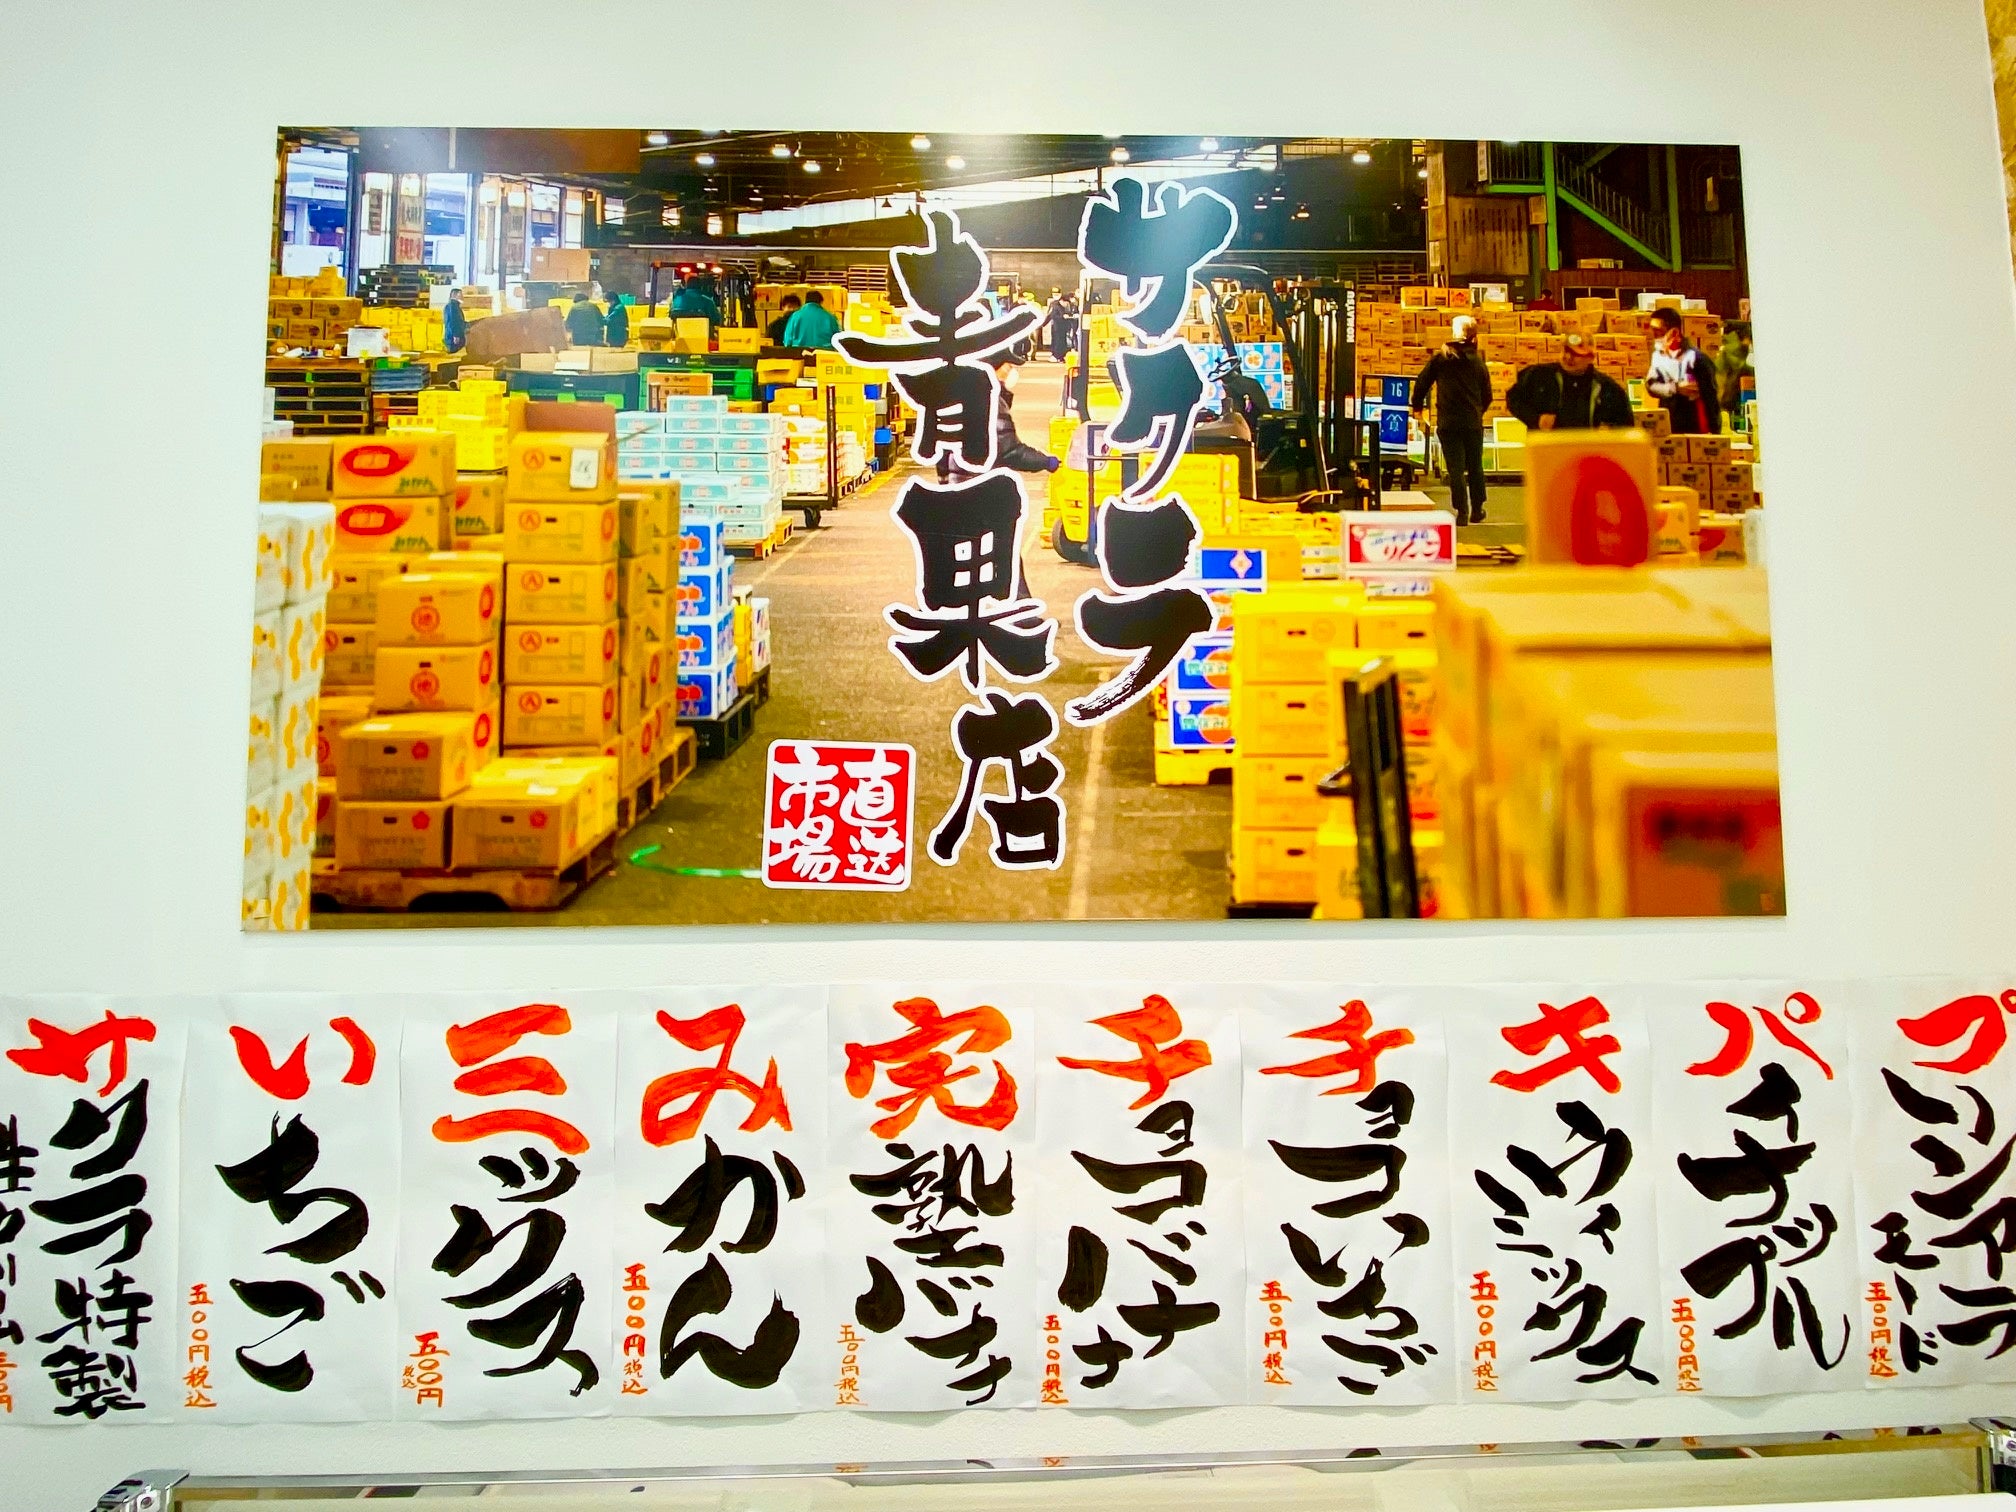 サクラ
青果店
直送
市場
みかん
みかん
りんご
16
プリンアラ
モード
五〇〇円税込
パイナップル
五〇〇円税込
キウィ
ミックス
五〇〇円税込
チョコいちご
五〇〇円税込
チョコバナナ
五〇〇円税込
完熟バナナ
五〇〇円税込
みかん
五〇〇円税込
ミックス
五〇〇円
税込
いちご
五〇〇円税込
サクラ特製
生クリーム